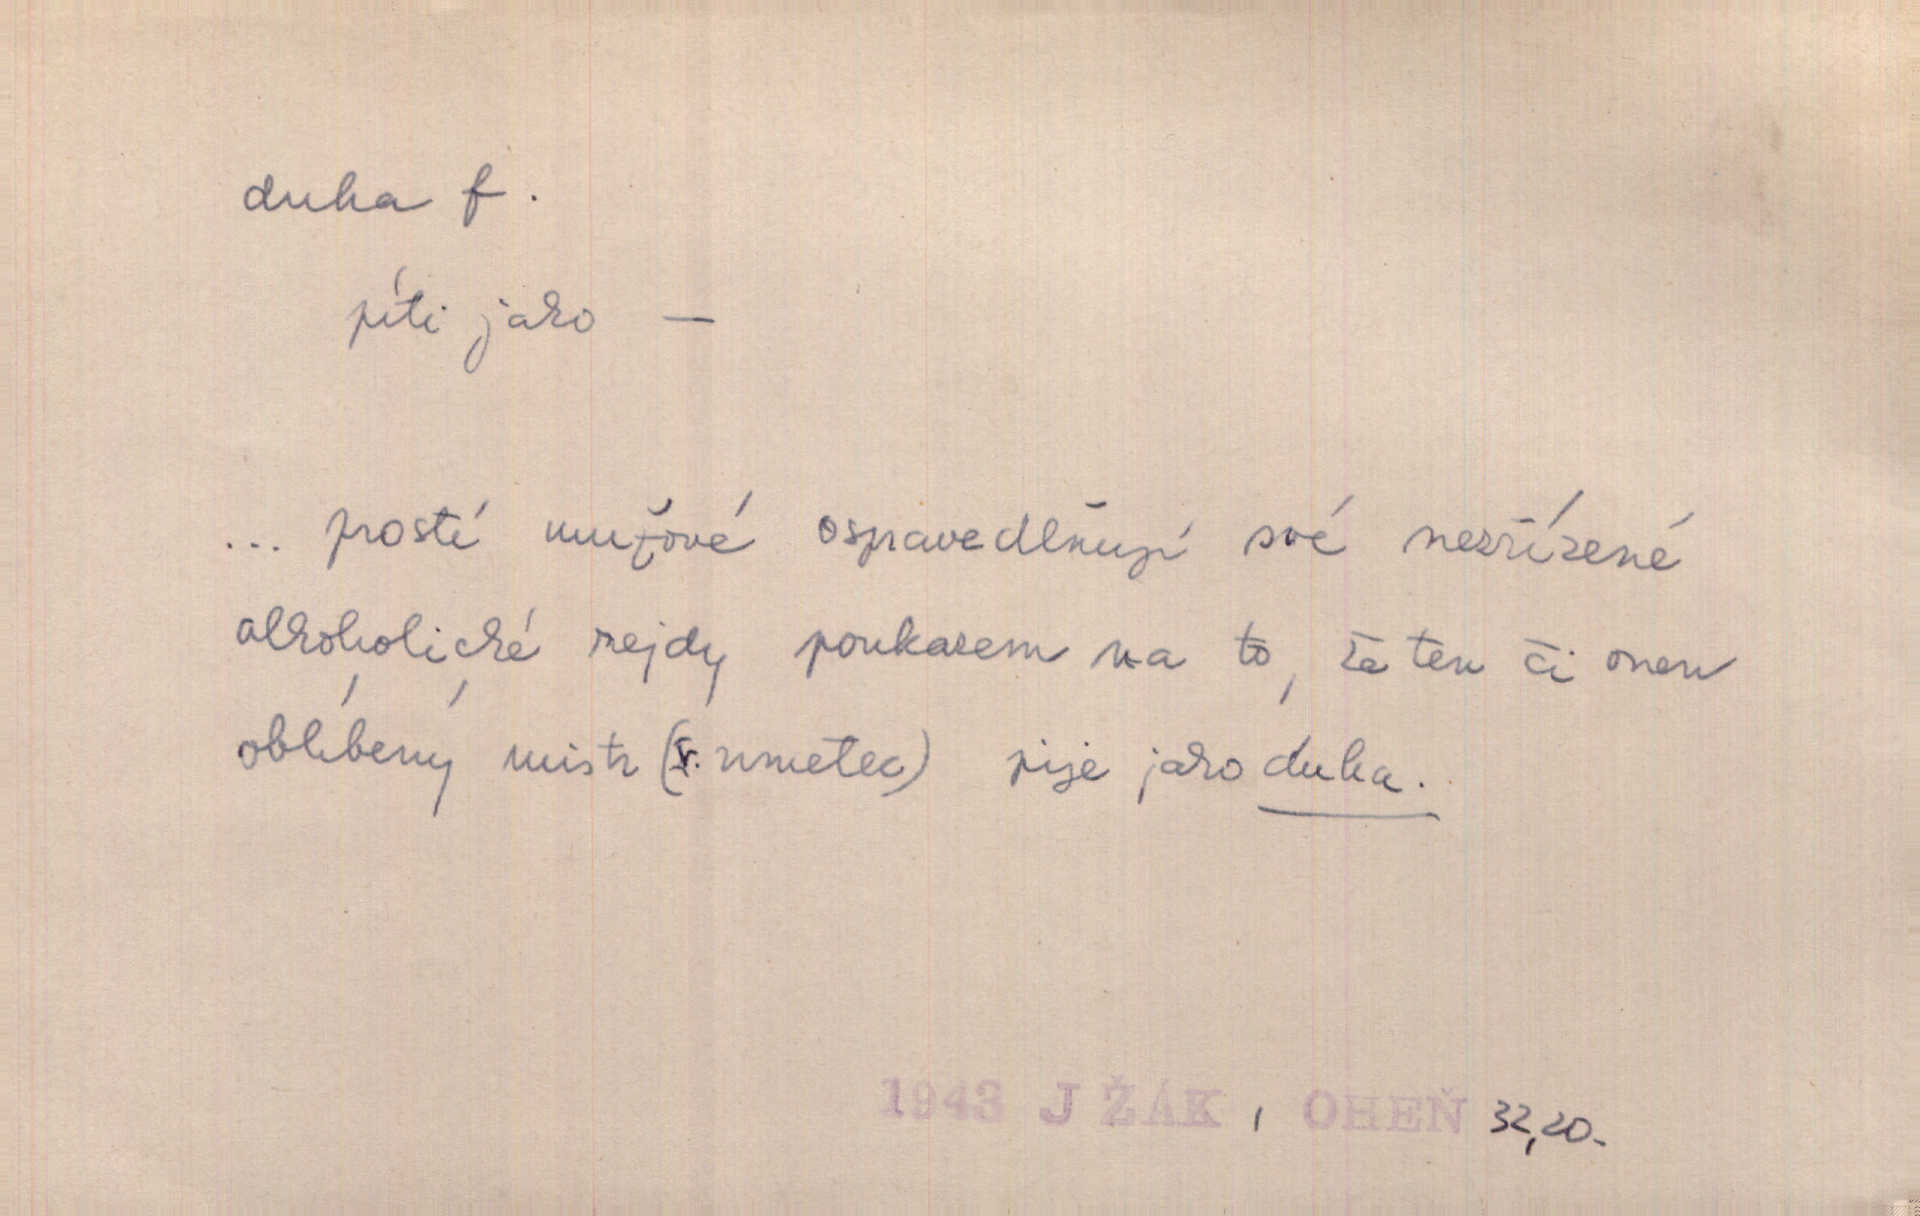 duha f.
píti jako —
... prostí mužové ospravedlňují své nezřízené
alkoholické rejdy poukazem na to, že ten či onen
oblíbený mistr (r. umetec) pije jako duha.
1943 J ŽÁK, OHEŇ 32,20.